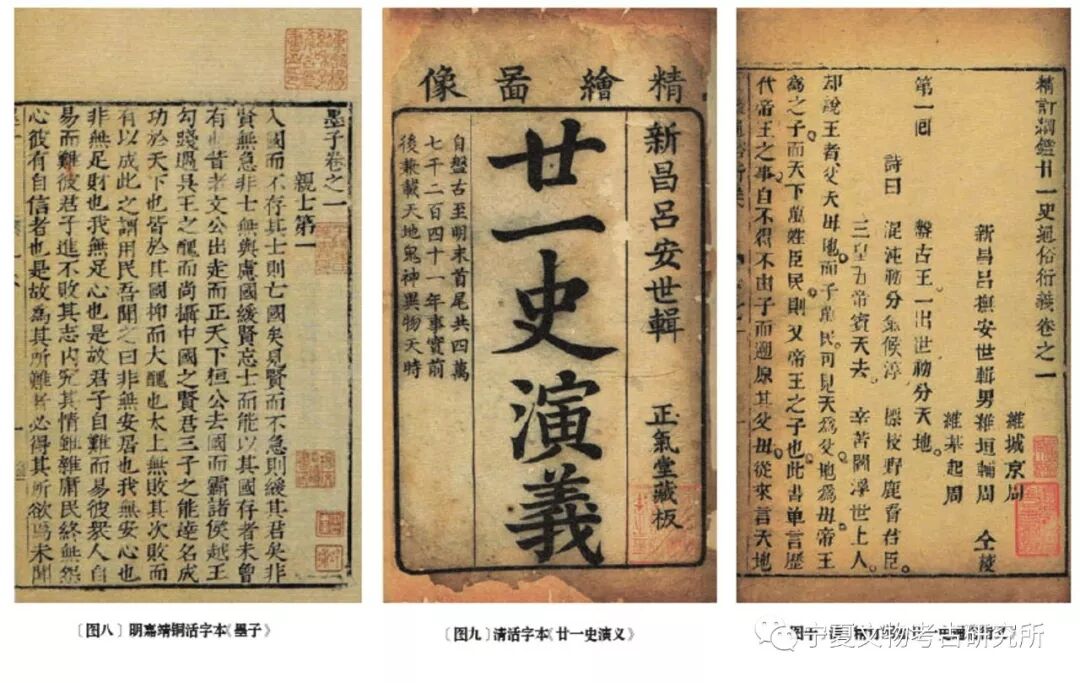 墨子卷之一
親士第一
入國而不存其士則亡國矣見賢而不急則緩其君矣非
賢無急非士無與慮國緩賢忘士而能以其國存者未曾
有也昔者文公出走而正天下桓公去國而霸諸侯越王
勾踐遇吳王之醜而尚攝中國之賢君三子之能達名成
功於天下也皆於其國抑而大醜也太上無敗其次敗而
有以成此之謂用民吾聞之曰非無安居也我無安心也
非無足財也我無足心也是故君子自難而易彼衆人自
易而難彼君子進不敗其志内究其情雖雜庸民終無怨
心彼有自信者也是故為其所難者必得其所欲焉未聞
〔图八〕明嘉靖铜活字本《墨子》
精繪啚像
新昌呂安世輯
正氣堂藏板
廿一史演義
自盤古至明末首尾共四萬
七千二百四十一年事實前
後兼載天地鬼神異物天時
〔图九〕清活字本《廿一史演义》
精訂綱鑑廿一史通俗衍義卷之一
新昌呂撫安世輯男維垣輔周
維城京周
維基起周
仝梓
第一囬
盤古王一出世初分天地
三皇五帝賓天去
詩曰
混沌初分氣候淳
標枝野鹿看君臣
辛苦閻浮世上人
却說王者父天母地而子萬民可見天為父地為母帝王
為之子而天下萬姓臣民則又帝王之子也此書单言歷
代帝王之事自不得不由子而遡原其父母從來言天地
宁夏文物考古研究所